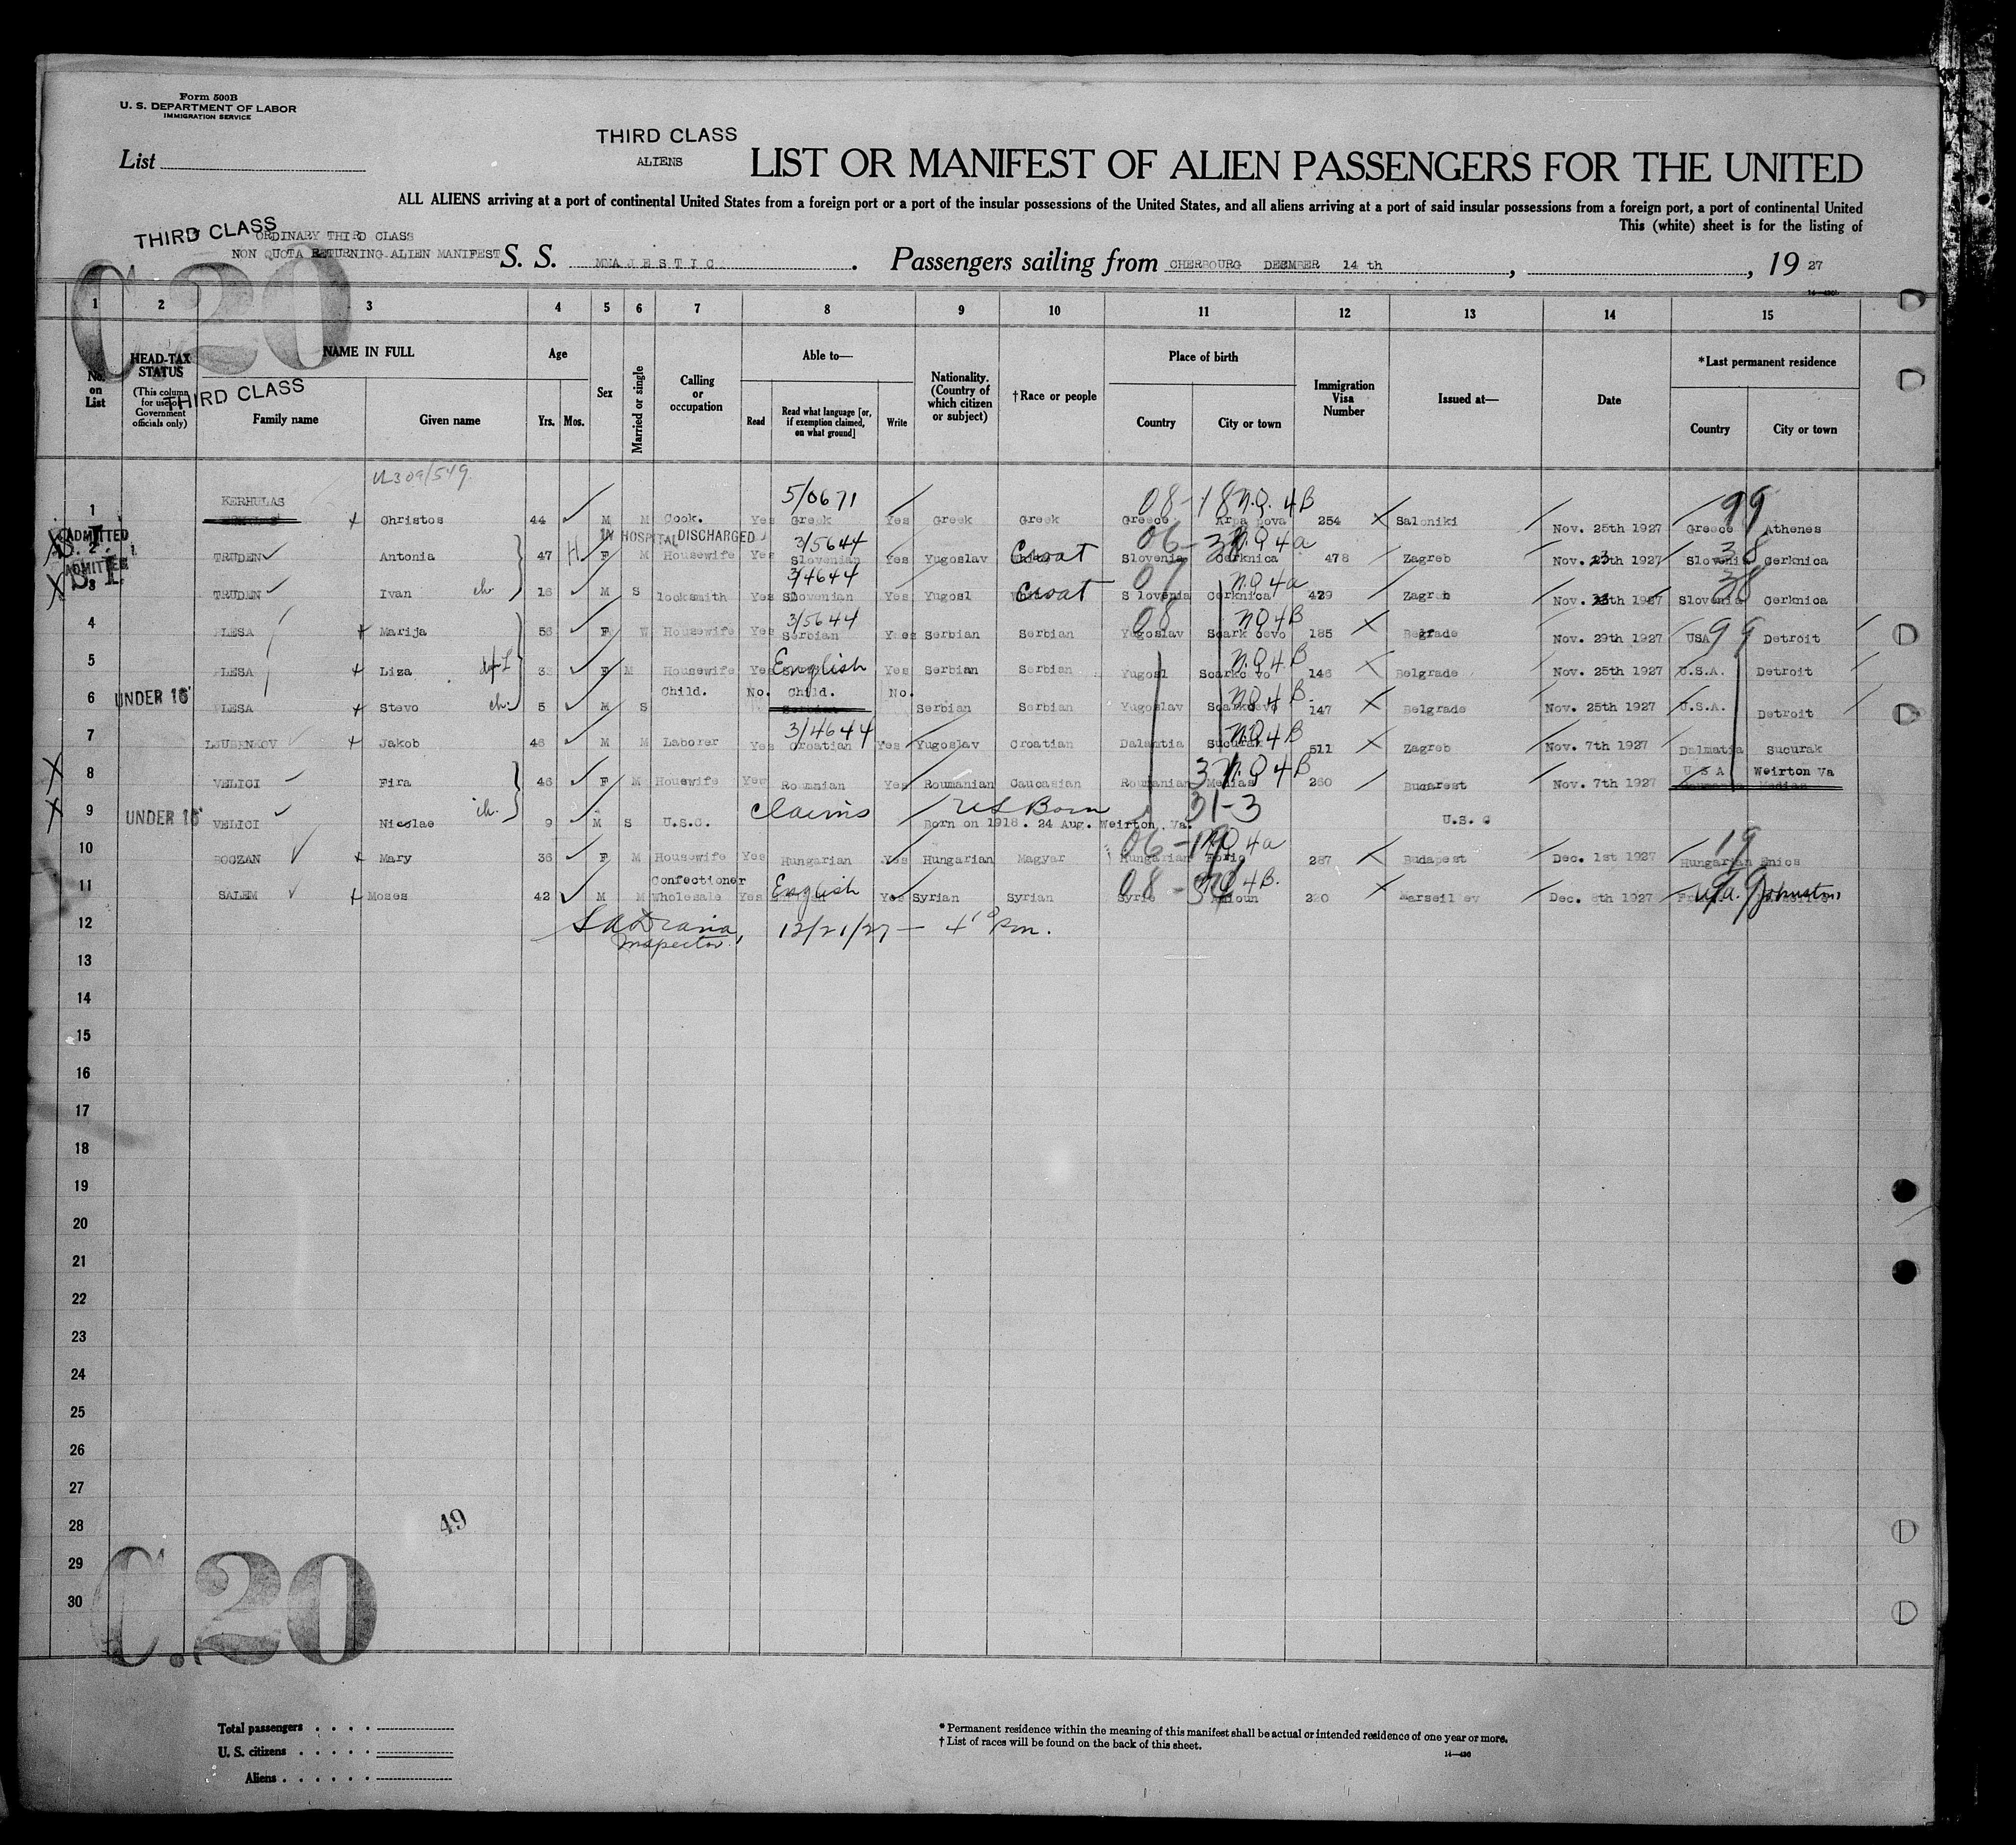 Form 500B
U. S. DEPARTMENT OF LABOR
IMMIGRATION SERVICE
List
THIRD CLASS
ALIENS
LIST OR MANIFEST OF ALIEN PASSENGERS FOR THE UNITED
ALL ALIENS arriving at a port of continental United States from a foreign port or a port of the insular possessions of the United States, and all aliens arriving at a port of said insular possessions from a foreign port, a port of continental United
This (white) sheet is for the listing of
THIRD CLASS
ORDINARY THIRD CLASS
NON QUOTA RETURNING ALIEN MANIFEST
S. S. MNAJESTIC. Passengers sailing from CHERBOURG DECMBER 14 th, , 19 27
C.20
1 2 3 4 5 6 7 8 9 10 11 12 13 14 15
No. on List
HEAD-TAX STATUS
(This column for use of Government officials only)
THIRD CLASS
NAME IN FULL
Family name Given name
Age
Yrs. Mos.
Sex
Married or single
Calling or occupation
Able to—
Read Read what language [or, if exemption claimed, on what ground] Write
Nationality. (Country of which citizen or subject)
†Race or people
Place of birth
Country City or town
Immigration Visa Number
Issued at—
Date
*Last permanent residence
Country City or town
5/0671 08-18 N.Q. 4B 99
1 KERHULAS Christos 44 M M Cook. Yes Greek Yes Greek Greek Greece Arpa nova 254 Saloniki Nov. 25th 1927 Greece Athenes
ADMITTED IN HOSPITAL DISCHARGED 3/5644
2 TRUDEN Antonia 47 F M Housewife Yes Slovenian Yes Yugoslav Croat Slovenia Cerknica 478 Zagreb Nov. 23th 1927 Slovenia Cerknica
ADMITTED 3/4644 NQ 4a 38
3 TRUDEN Ivan ch. 16 M S locksmith Yes Slovenian Yes Yugosl Croat Slovenia Cerknica 429 Zagreb Nov. 1927 Slovenia Cerknica
3/5644 08 NQ 4B 99
4 PLESA Marija 56 F W Housewife Yes Serbian Yes Serbian Serbian Yugoslav 185 Belgrade Nov. 29th 1927 USA Detroit
5 PLESA Liza F M Housewife Yes English Yes Serbian Serbian Yugosl 146 Belgrade Nov. 25th 1927 U.S.A. Detroit
6 UNDER 16 PLESA Stevo ch. 5 M S Child. No. Child. No. Serbian Serbian Yugoslav 147 Belgrade Nov. 25th 1927 U.S.A. Detroit
3/4644 NQ 4B
7 LJUBENKOV Jakob 48 M M Laborer Yes Croatian Yes Yugoslav Croatian Dalmatia Sucurak 511 Zagreb Nov. 7th 1927 Dalmatia Sucurak
8 VELICI Fira 46 F M Houewife Yes Roumnian Yes Roumanian Caucasian Roumanian Medias 260 Bucarest Nov. 7th 1927 U S A Weirton Va
claims US Born 31-3
9 UNDER 16 VELICI Nicolae ch. 9 M S U.S.C. Born on 1918. 24 Aug. Weirton, Va. U.S. C
10 BOGZAN Mary 36 F M Housewife Yes Hungarian Yes Hungarian Magyar Hungarian 287 Budapest Dec. 1st 1927 Hungarian Enics
11 SALEM Moses 42 M M Confectioner Wholesale Yes English Yes Syrian Syrian Syrie 220 Marseil ey Dec. 8th 1927 Johnston,
12 Inspector, 12/21/27 — 4 Pm.
13
14
15
16
17
18
19
20
21
22
23
24
25
26
27
28
29
30
49
C.20
Total passengers
U. S. citizens
Aliens
* Permanent residence within the meaning of this manifest shall be actual or intended residence of one year or more.
† List of races will be found on the back of this sheet.
14—430